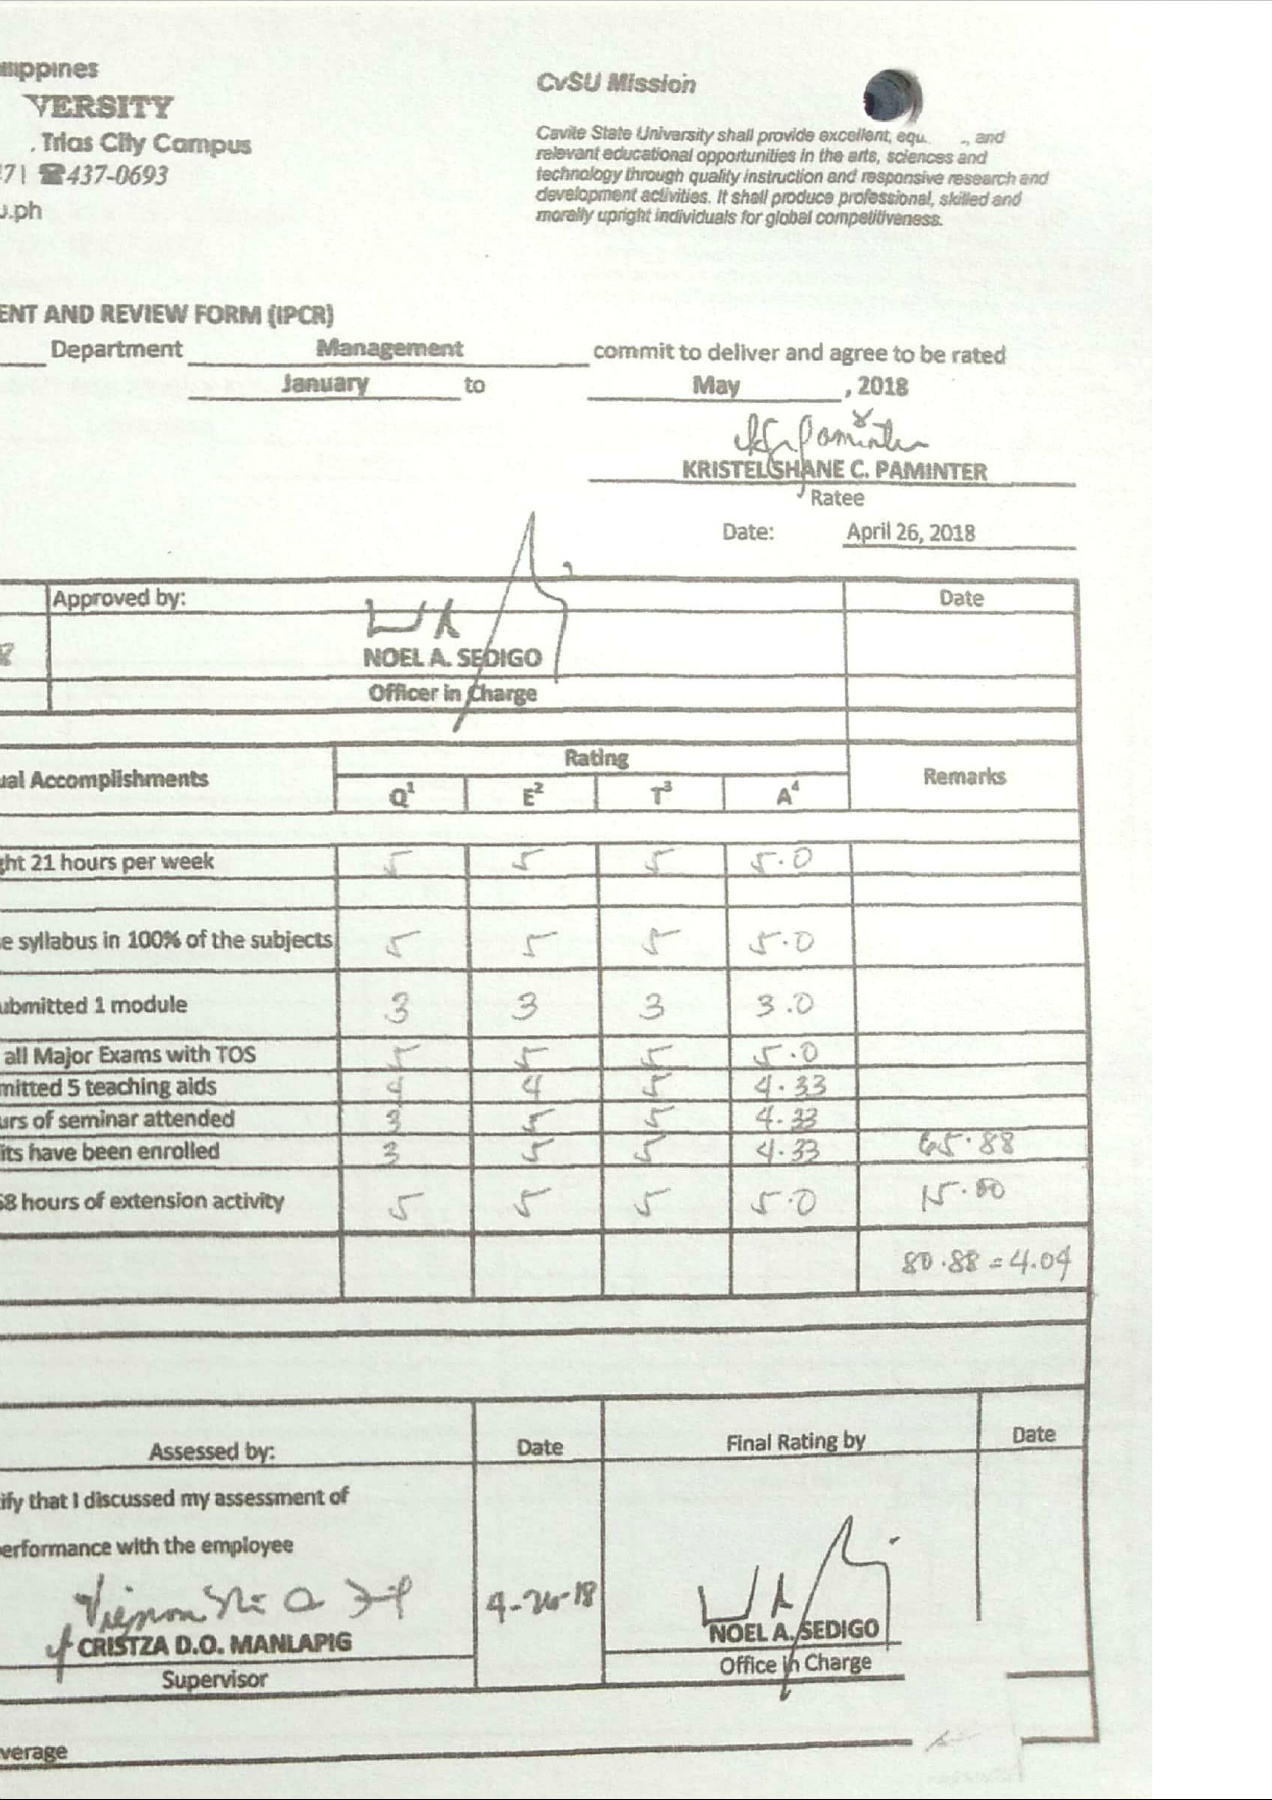 CvSU Mission
VERSITY
Trias City Campus
Cavite State University shall provide excellent, equ. , and
relevant educational opportunities in the arts, sciences and
71 ☎437-0693
technology through quality instruction and responsive research and
development activities. It shall produce professional, skilled and
u.ph
morally upright individuals for global competitiveness.
ENT AND REVIEW FORM (IPCR)
Department Management commit to deliver and agree to be rated
January to May , 2018
KRISTEL SHANE C. PAMINTER
Ratee
Date: April 26, 2018
Approved by: Date
NOEL A. SEDIGO
Officer in Charge
Rating
ual Accomplishments Remarks
Q¹ E² T³ A⁴
ght 21 hours per week 5 5 5 5.0
e syllabus in 100% of the subjects 5 5 5 5.0
ubmitted 1 module 3 3 3 3.0
all Major Exams with TOS 5 5 5 5.0
mitted 5 teaching aids 4 4 5 4.33
urs of seminar attended 3 5 5 4.33
its have been enrolled 3 5 5 4.33 65.88
68 hours of extension activity 5 5 5 5.0 15.00
80.88 = 4.04
Assessed by: Date Final Rating by Date
ify that I discussed my assessment of
erformance with the employee
4-26-18
CRISTZA D.O. MANLAPIG
NOEL A. SEDIGO
Supervisor
Office in Charge
verage